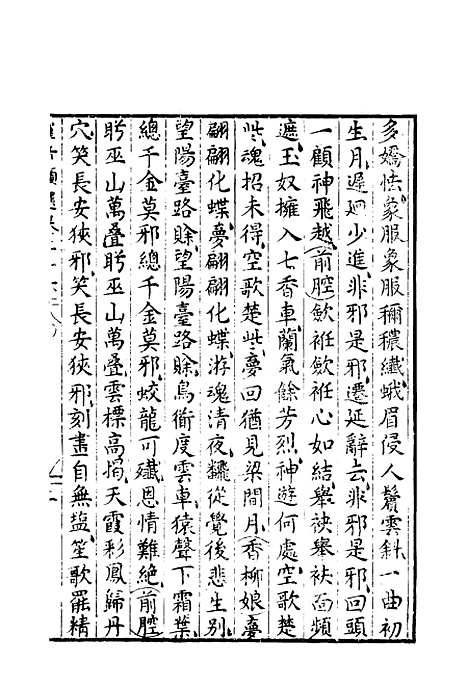 多嬌怯象服象服穠穠纖蛾眉侵人鬢雲斜一曲初
生月遲迴少進非邪是邪遷延辭去非邪是邪回頭
一顧神飛越前腔歛袵歛袵心如結舉袂舉袂面頻
遮玉奴擁入七香車蘭氣餘芳烈神遊何處空歌楚
些魂招未得空歌楚些夢回猶見梁間月香柳娘夢
翩翩化蝶夢翩翩化蝶游魂清夜飄從覺後悲生別
望陽臺路賒望陽臺路賒鳥銜度雲車猿聲下霜葉
總千金莫邪總千金莫邪蛟龍可殲恩情難絕前腔
盻巫山萬叠盻巫山萬叠雲標高揭天霞彩鳳歸丹
穴笑長安狹邪笑長安狹邪刻畫自無鹽笙歌罷精